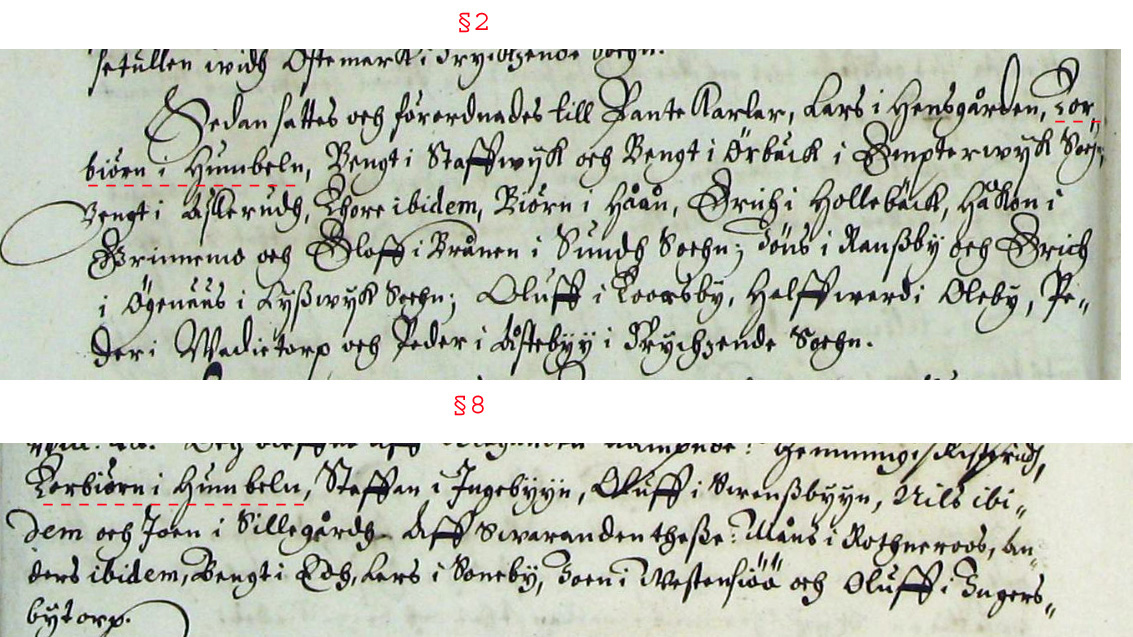 §2
setullen widh Östemark i Frychzende Sochn.
Sedan sattes och förordnades till Pante Karlar, Lars i Hensgården, Tor,,
biörn i Humbeln, Bengt i Staffwyk och Bengt i Örbäck i Empterwyk Soch,,
Bengt i Åsslerudh, Thore ibidem, Biörn i Håån, Erich i Hollebäck, Håkon i
Brinnemo och Oloff i Brånen i Sundh Sochn; Jöns i Ranßby och Erich
i Ögenääs i Lyßwyk Sochn; Oluff i Toorsby, Halffward i Oleby, Pe,,
der i Wadietorp och Peder i Åstebyy i Frychzende Sochn.
§8
Torbiörn i Humbeln, Staffan i Ingebyyn, Oluff i Swenßbyyn, Nils ibi,,
dem och Joen i Sillegårdh. Aff Swaranden theße: Måns i Rothneroos, An,,
ders ibidem, Bengt i Edh, Lars i Soneby, Joen i Westensiöö och Oluff i Ingers,,
bytorp.